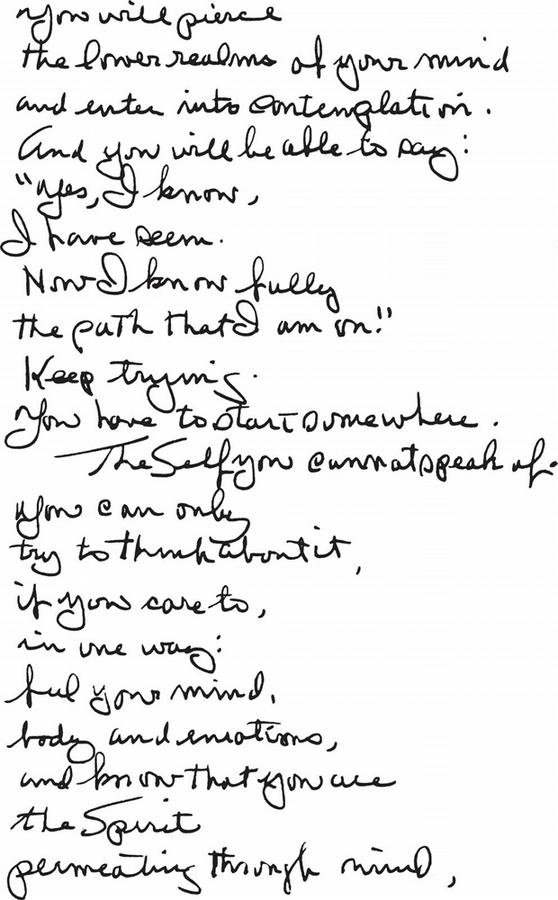 You will pierce
the lower realms of your mind
and enter into contemplation.
And you will be able to say:
"Yes, I know,
I have seen.
Now I know fully
the path that I am on."
Keep trying.
You have to start somewhere.
The Self you cannot speak of.
You can only
try to think about it,
if you care to,
in one way:
feel your mind,
body and emotions,
and know that you are
the Spirit
permeating through mind,